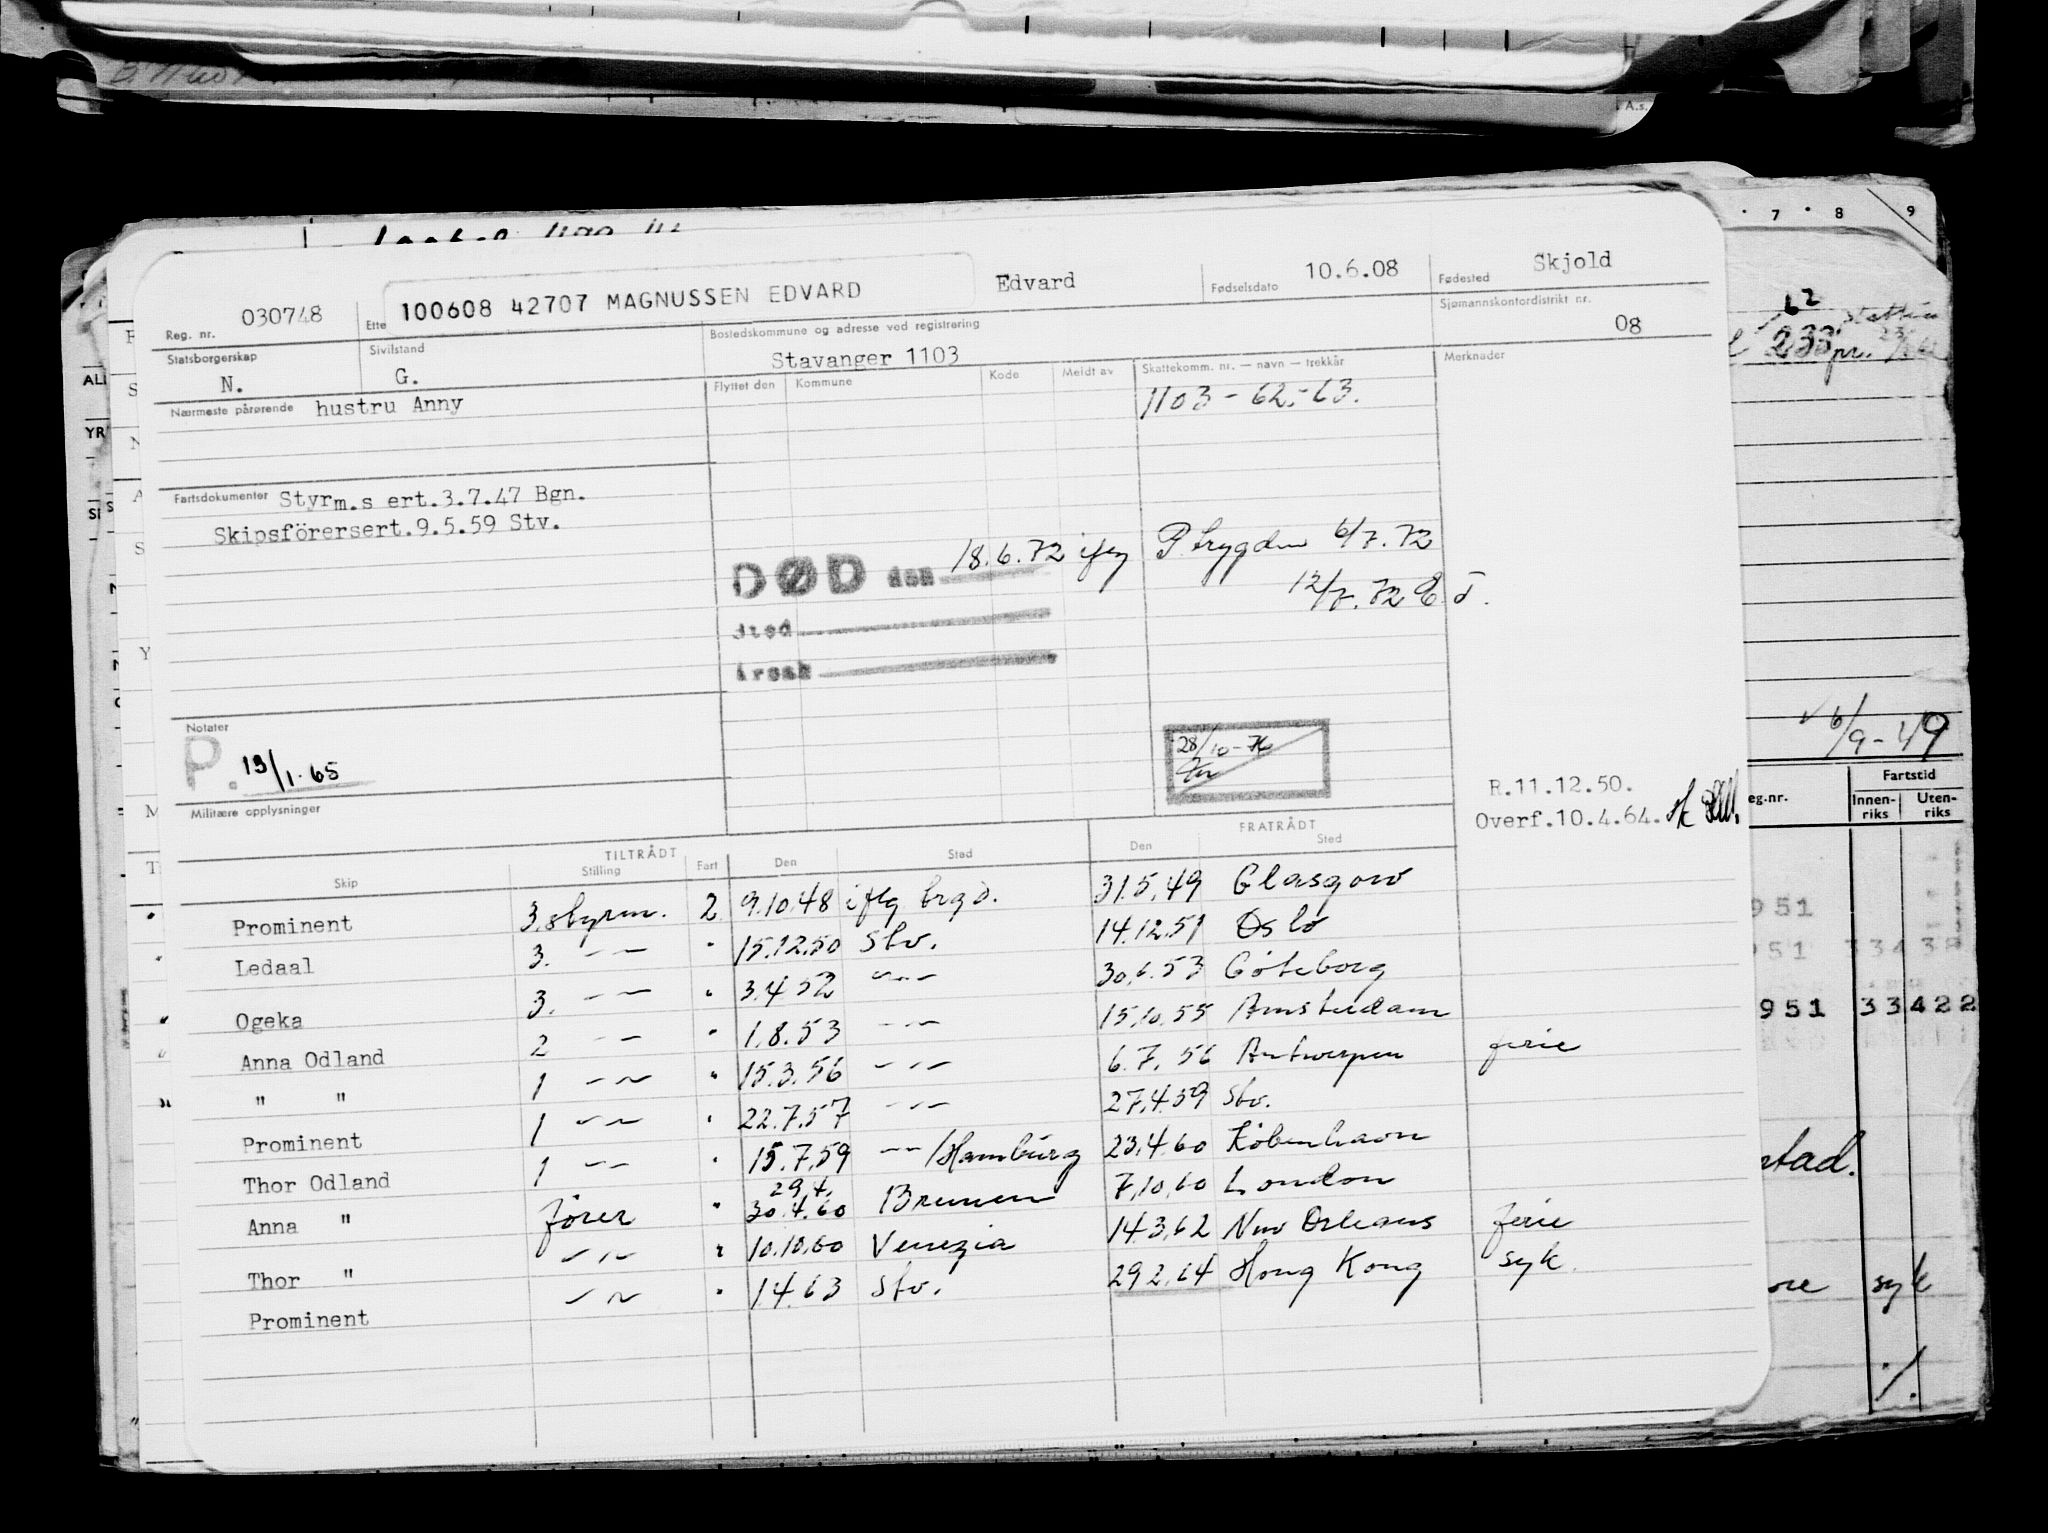 A.s.
7 8 9
Reg. nr. 030748 Ette 100608 42707 MAGNUSSEN EDVARD Edvard Fødselsdato 10.6.08 Fødested Skjold
Statsborgerskap N. Sivilstand G. Bostedskommune og adresse ved registrering Stavanger 1103 Sjømannskontordistrikt nr. 08
Nærmeste pårørende hustru Anny
Flyttet den Kommune Kode Meldt av Skattekomm. nr. — navn — trekkår Merknader
1103 - 62,-63.
Fartsdokumenter Styrm.s ert.3.7.47 Bgn.
Skipsförersert.9.5.59 Stv.
DØD den 18.6.72 iflg P.trygden 6/7.72
12/7.72 E.T.
Sted
Årsak
Notater
P. 13/1.65
28/10-76
Militære opplysninger
R.11.12.50.
Overf.10.4.64.
TILTRÅDT FRATRÅDT
Skip Stilling Fart Den Sted Den Sted
Prominent 3.styrm. 2 9.10.48 iflg brgd. 31.5.49 Glasgow
Ledaal 3. -"- " 15.12.50 Stv. 14.12.51 Oslo
Ogeka 3. -"- " 3.4 52 -"- 30.6.53 Göteborg
Anna Odland 2 -"- " 1.8.53 -"- 15.10.55 Amsterdam
" " 1 -"- " 15.3.56 -"- 6.7.56 Antwerpen ferie
Prominent 1 -"- " 22.7.57 -"- 27.4.59 Stv.
Thor Odland 1 -"- " 15.7.59 -"- /Hamburg 23.4.60 København
Anna " fører " 29.4. 30.4.60 Bremen 7.10.60 London
Thor " -"- " 10.10.60 Venezia 14.3.62 New Orleans ferie
Prominent -"- " 1.4.63 Stv. 29.2.64 Hong Kong syk.
62
233
6/9-49
eg.nr. Fartstid
Innen-riks Uten-riks
951
951 33438
951 33422
stad.
ore syk